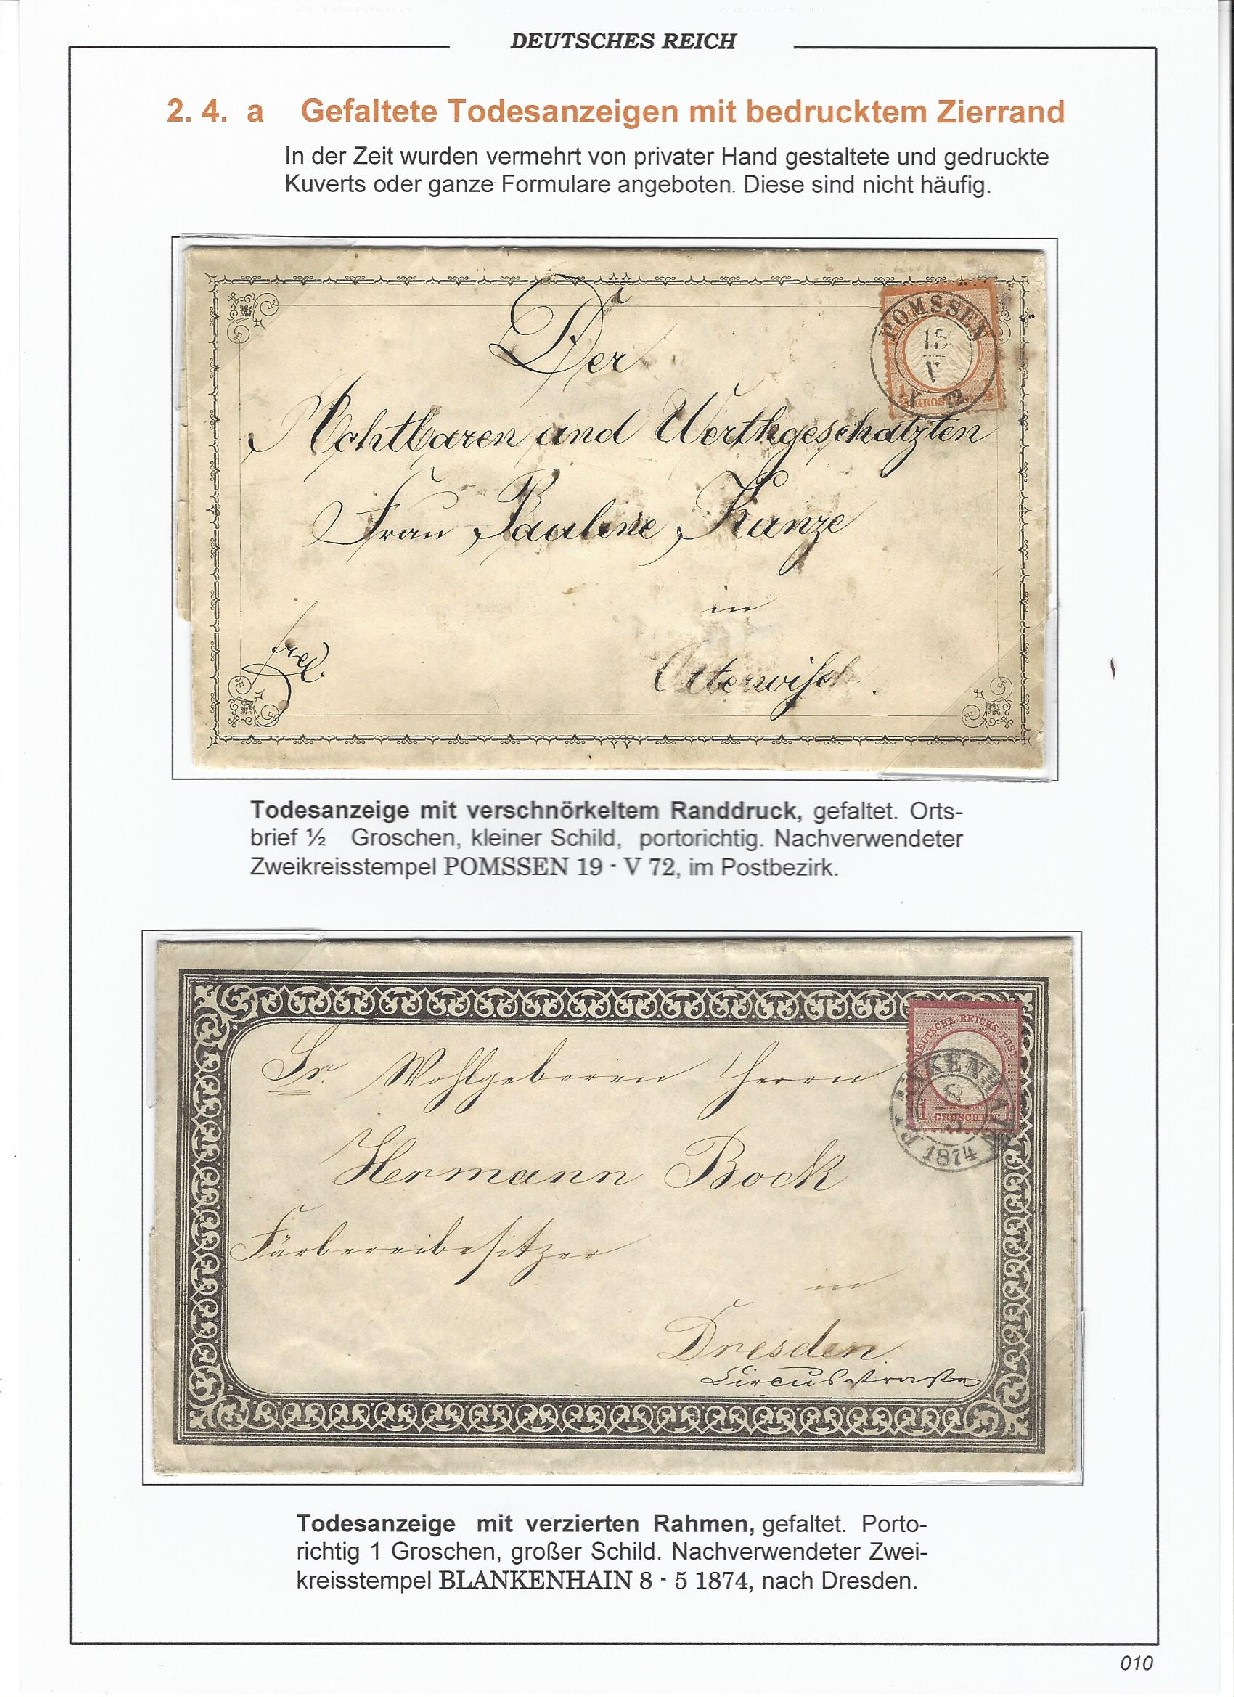 DEUTSCHES REICH
2. 4. a Gefaltete Todesanzeigen mit bedrucktem Zierrand
In der Zeit wurden vermehrt von privater Hand gestaltete und gedruckte
Kuverts oder ganze Formulare angeboten. Diese sind nicht häufig.
POMSSEN
V 72
GROSCHEN
Der
Achtbaren und Werthgeschätzten
Frau Pauline Kunze
in
Otterwisch.
Todesanzeige mit verschnörkeltem Randdruck, gefaltet. Orts-
brief ½ Groschen, kleiner Schild, portorichtig. Nachverwendeter
Zweikreisstempel POMSSEN 19 - V 72, im Postbezirk.
DEUTSCHE REICHS-POST
1 GROSCHEN
BLANKENHAIN
8
5
1874
Sr. Wohlgeboren Herrn
Hermann Bock
Färbereibesitzer
in
Dresden.
Circusstrasse
Todesanzeige mit verzierten Rahmen, gefaltet. Porto-
richtig 1 Groschen, großer Schild. Nachverwendeter Zwei-
kreisstempel BLANKENHAIN 8 - 5 1874, nach Dresden.
010